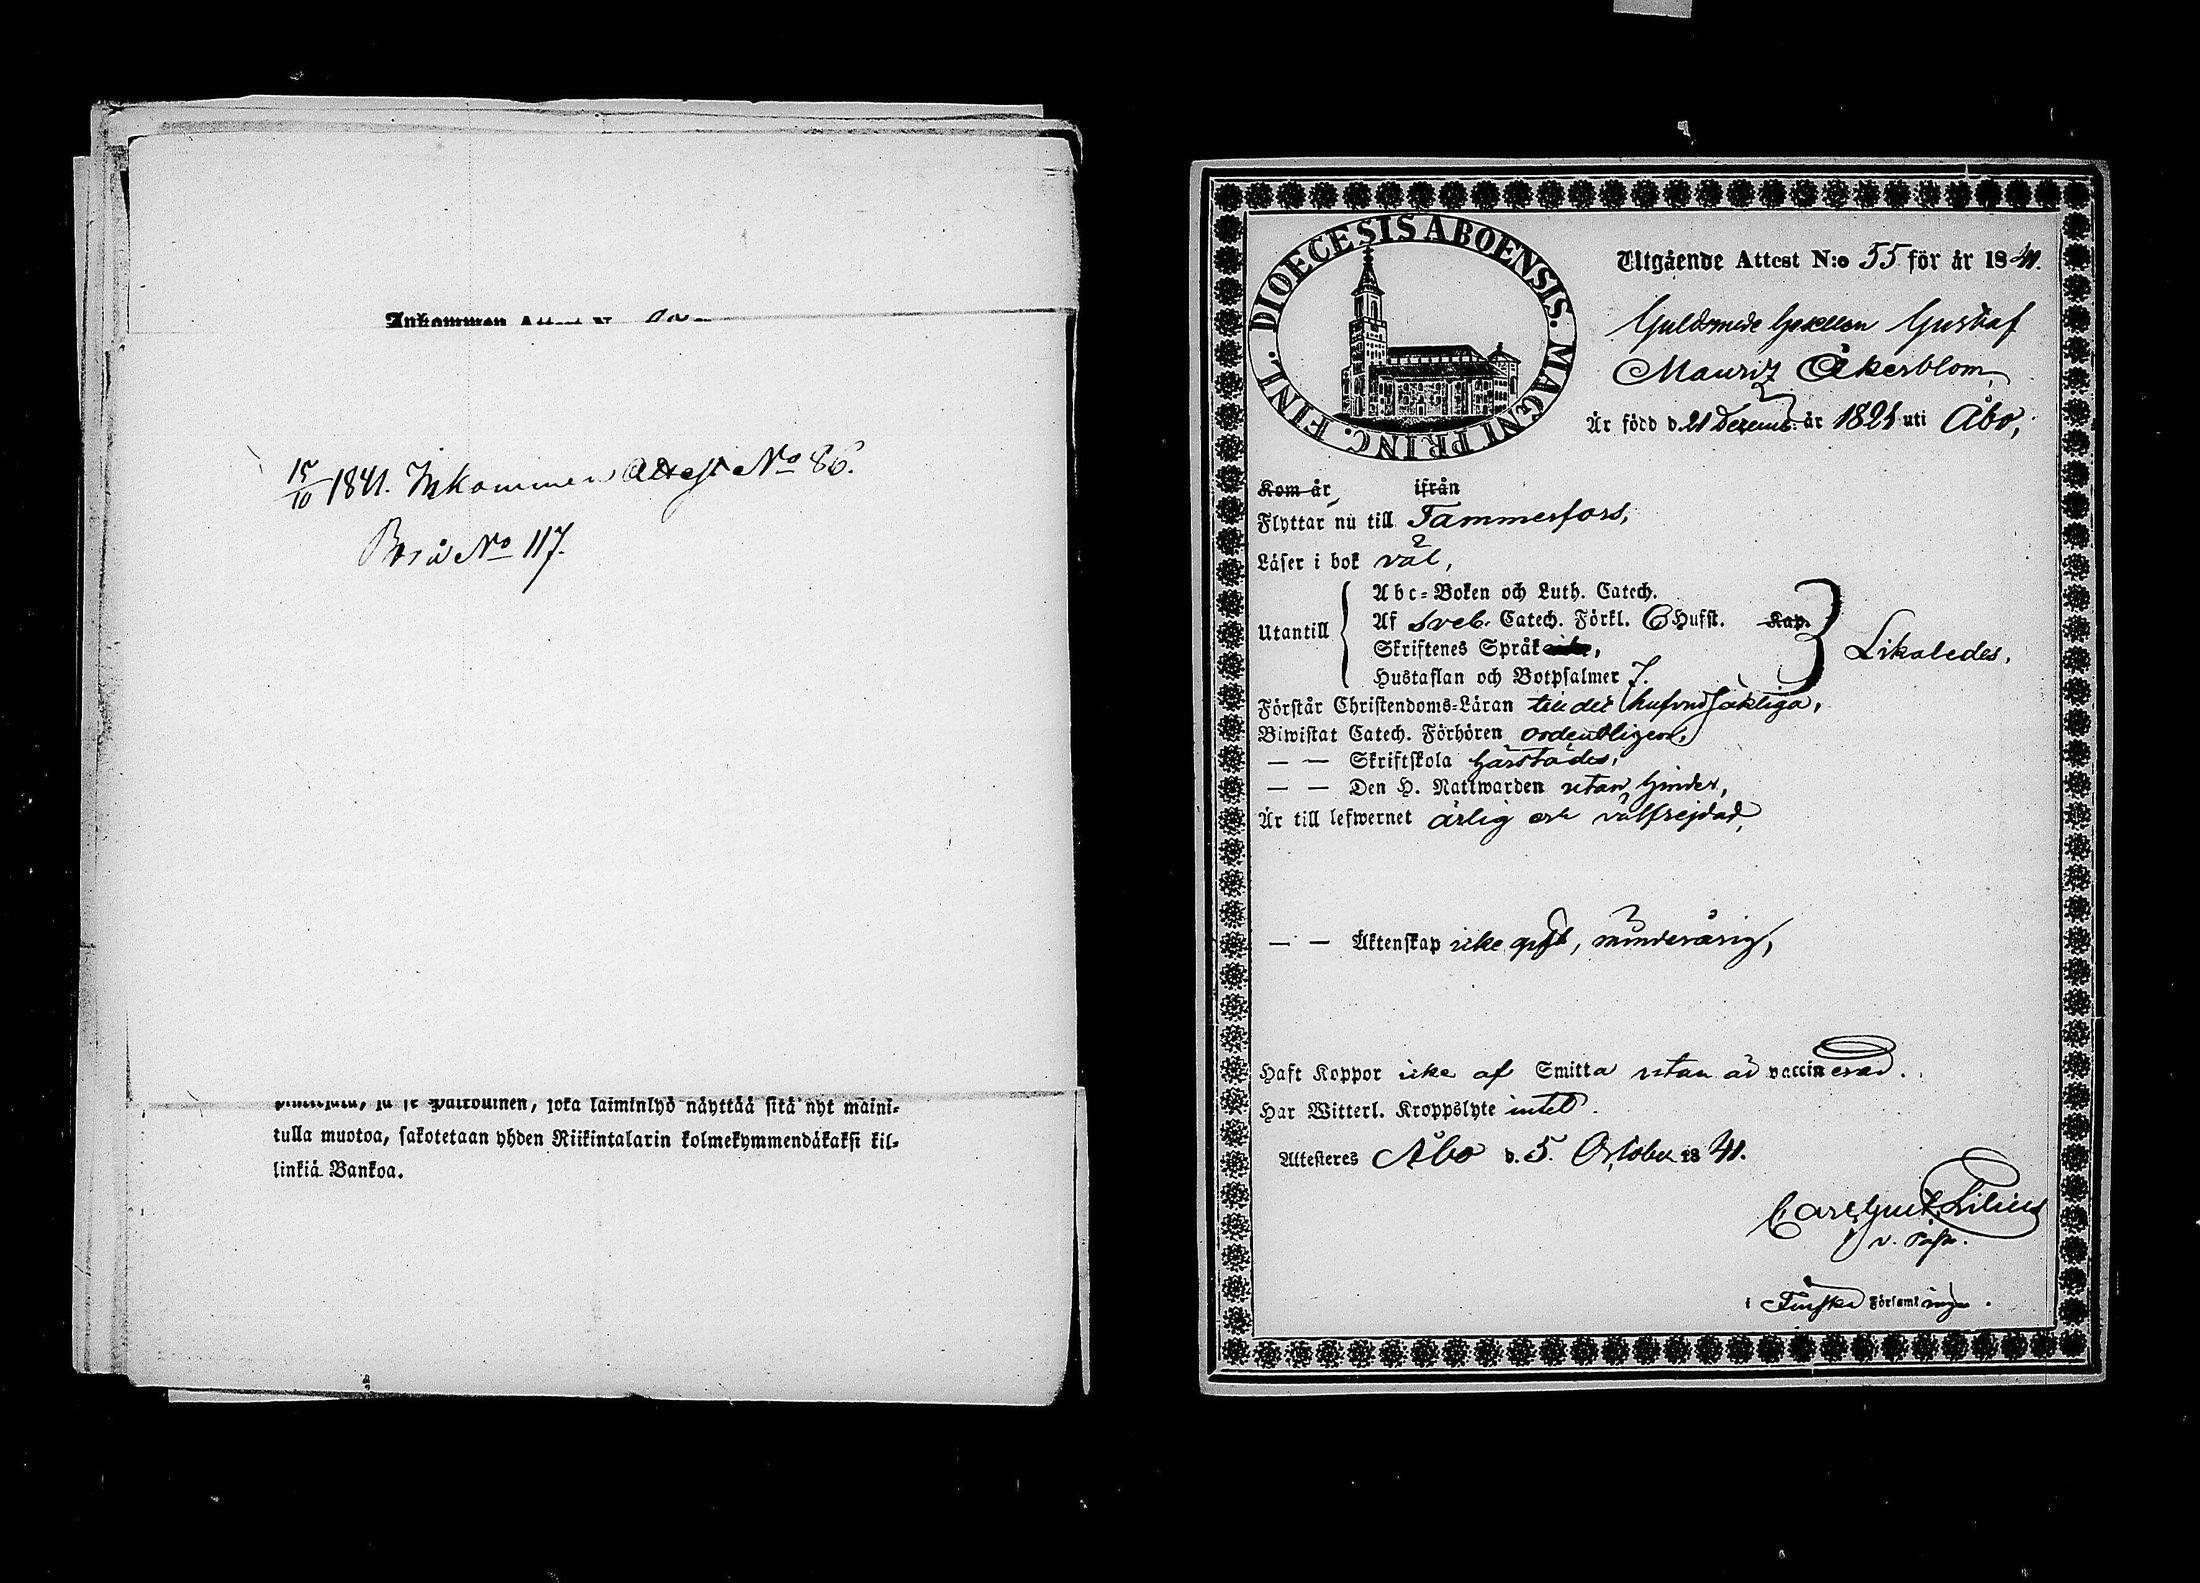 15/10 1841. Inkommen Attest No 86.
Boså No 117.
tulla muotoa, sakotetaan yhden Riikintalarin kolmekymmendäkaksi kil-
linkiä Bankoa.
DIOECESIS ABOENSIS. MAGNI PRINC. FINL.
Utgående Attest N:o 55 för år 1841.
Guldsmeds Gesellen Gustaf
Mauritz Åkerblom,
Är född d. 21 Decemb. år 1821 uti Åbo,
Kom år ifrån
Flyttar nu till Tammerfors,
Läser i bok väl,
Abc-Boken och Luth. Catech.
Utantill Af Sveb. Catech. Förkl. 6 Hufst. Kap.
Skriftenes Språk
Hustaflan och Botpsalmer 7. Likaledes.
Förstår Christendoms-Läran till det hufvudsakliga,
Biwistat Catech. Förhören ordentligen,
— — Skriftskola härstädes,
— — Den H. Nattwarden utan hinder,
Är till lefwernet ärlig och välfrejdad,
— — Äktenskap icke gift, minderårig,
Haft Koppor icke af Smitta utan är vaccinerad.
Har Witterl. Kroppslyte intet.
Attesteres Åbo d. 5. October 1841.
Carl Gust. Lilius
v. Past.
i Finska Församlingen.